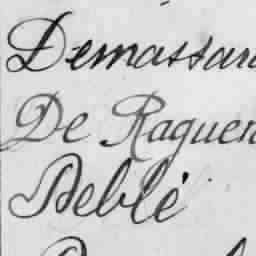 Demassan
De Raguen
Deblé